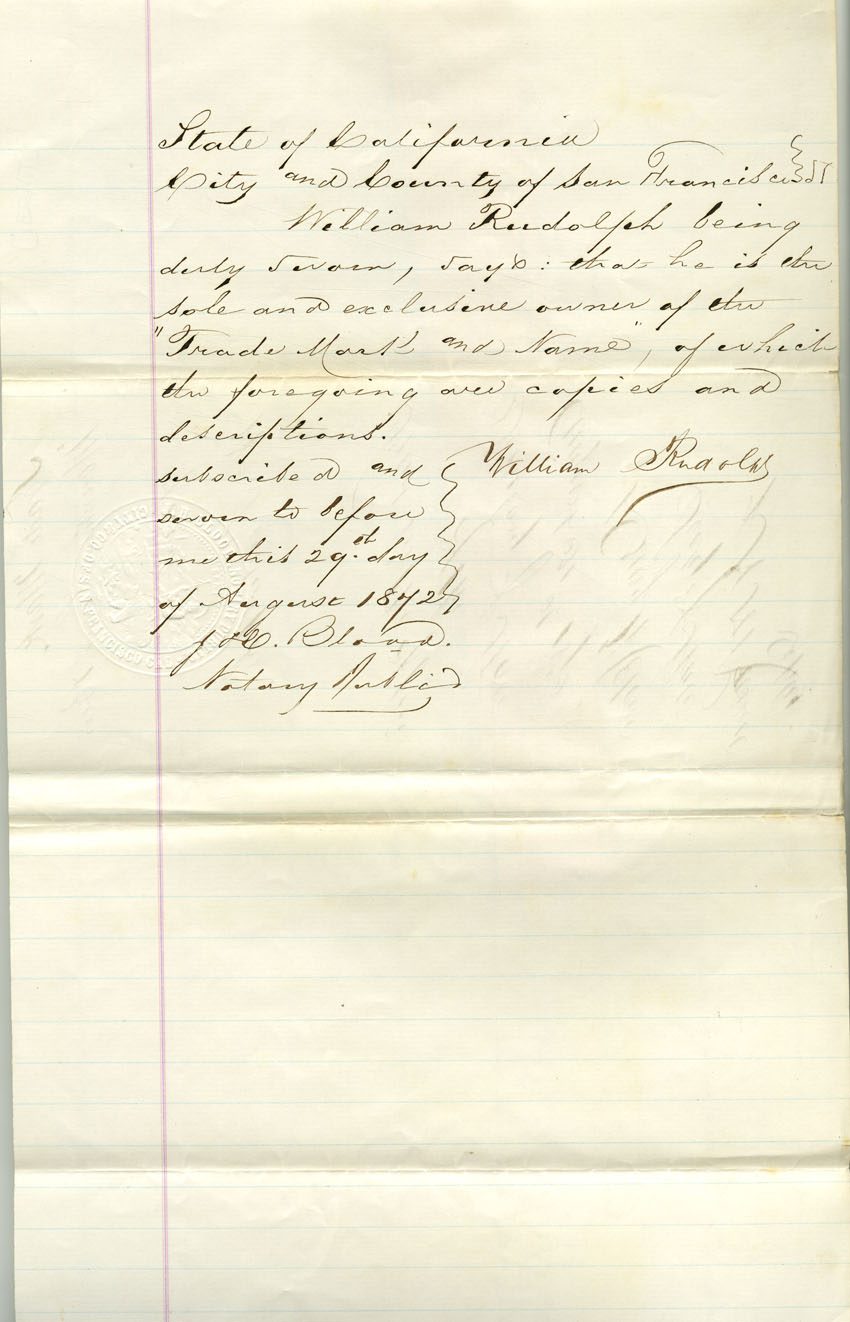 State of California
City and County of San Francisco } SS
William Rudolph being
duly sworn, says: that he is the
sole and exclusive owner of the
"Trade Mark and Name", of which
the foregoing are copies and
descriptions.
subscribed and William Rudolph
sworn to before
me this 29th day
of August 1872
J. H. Blood.
Notary Public